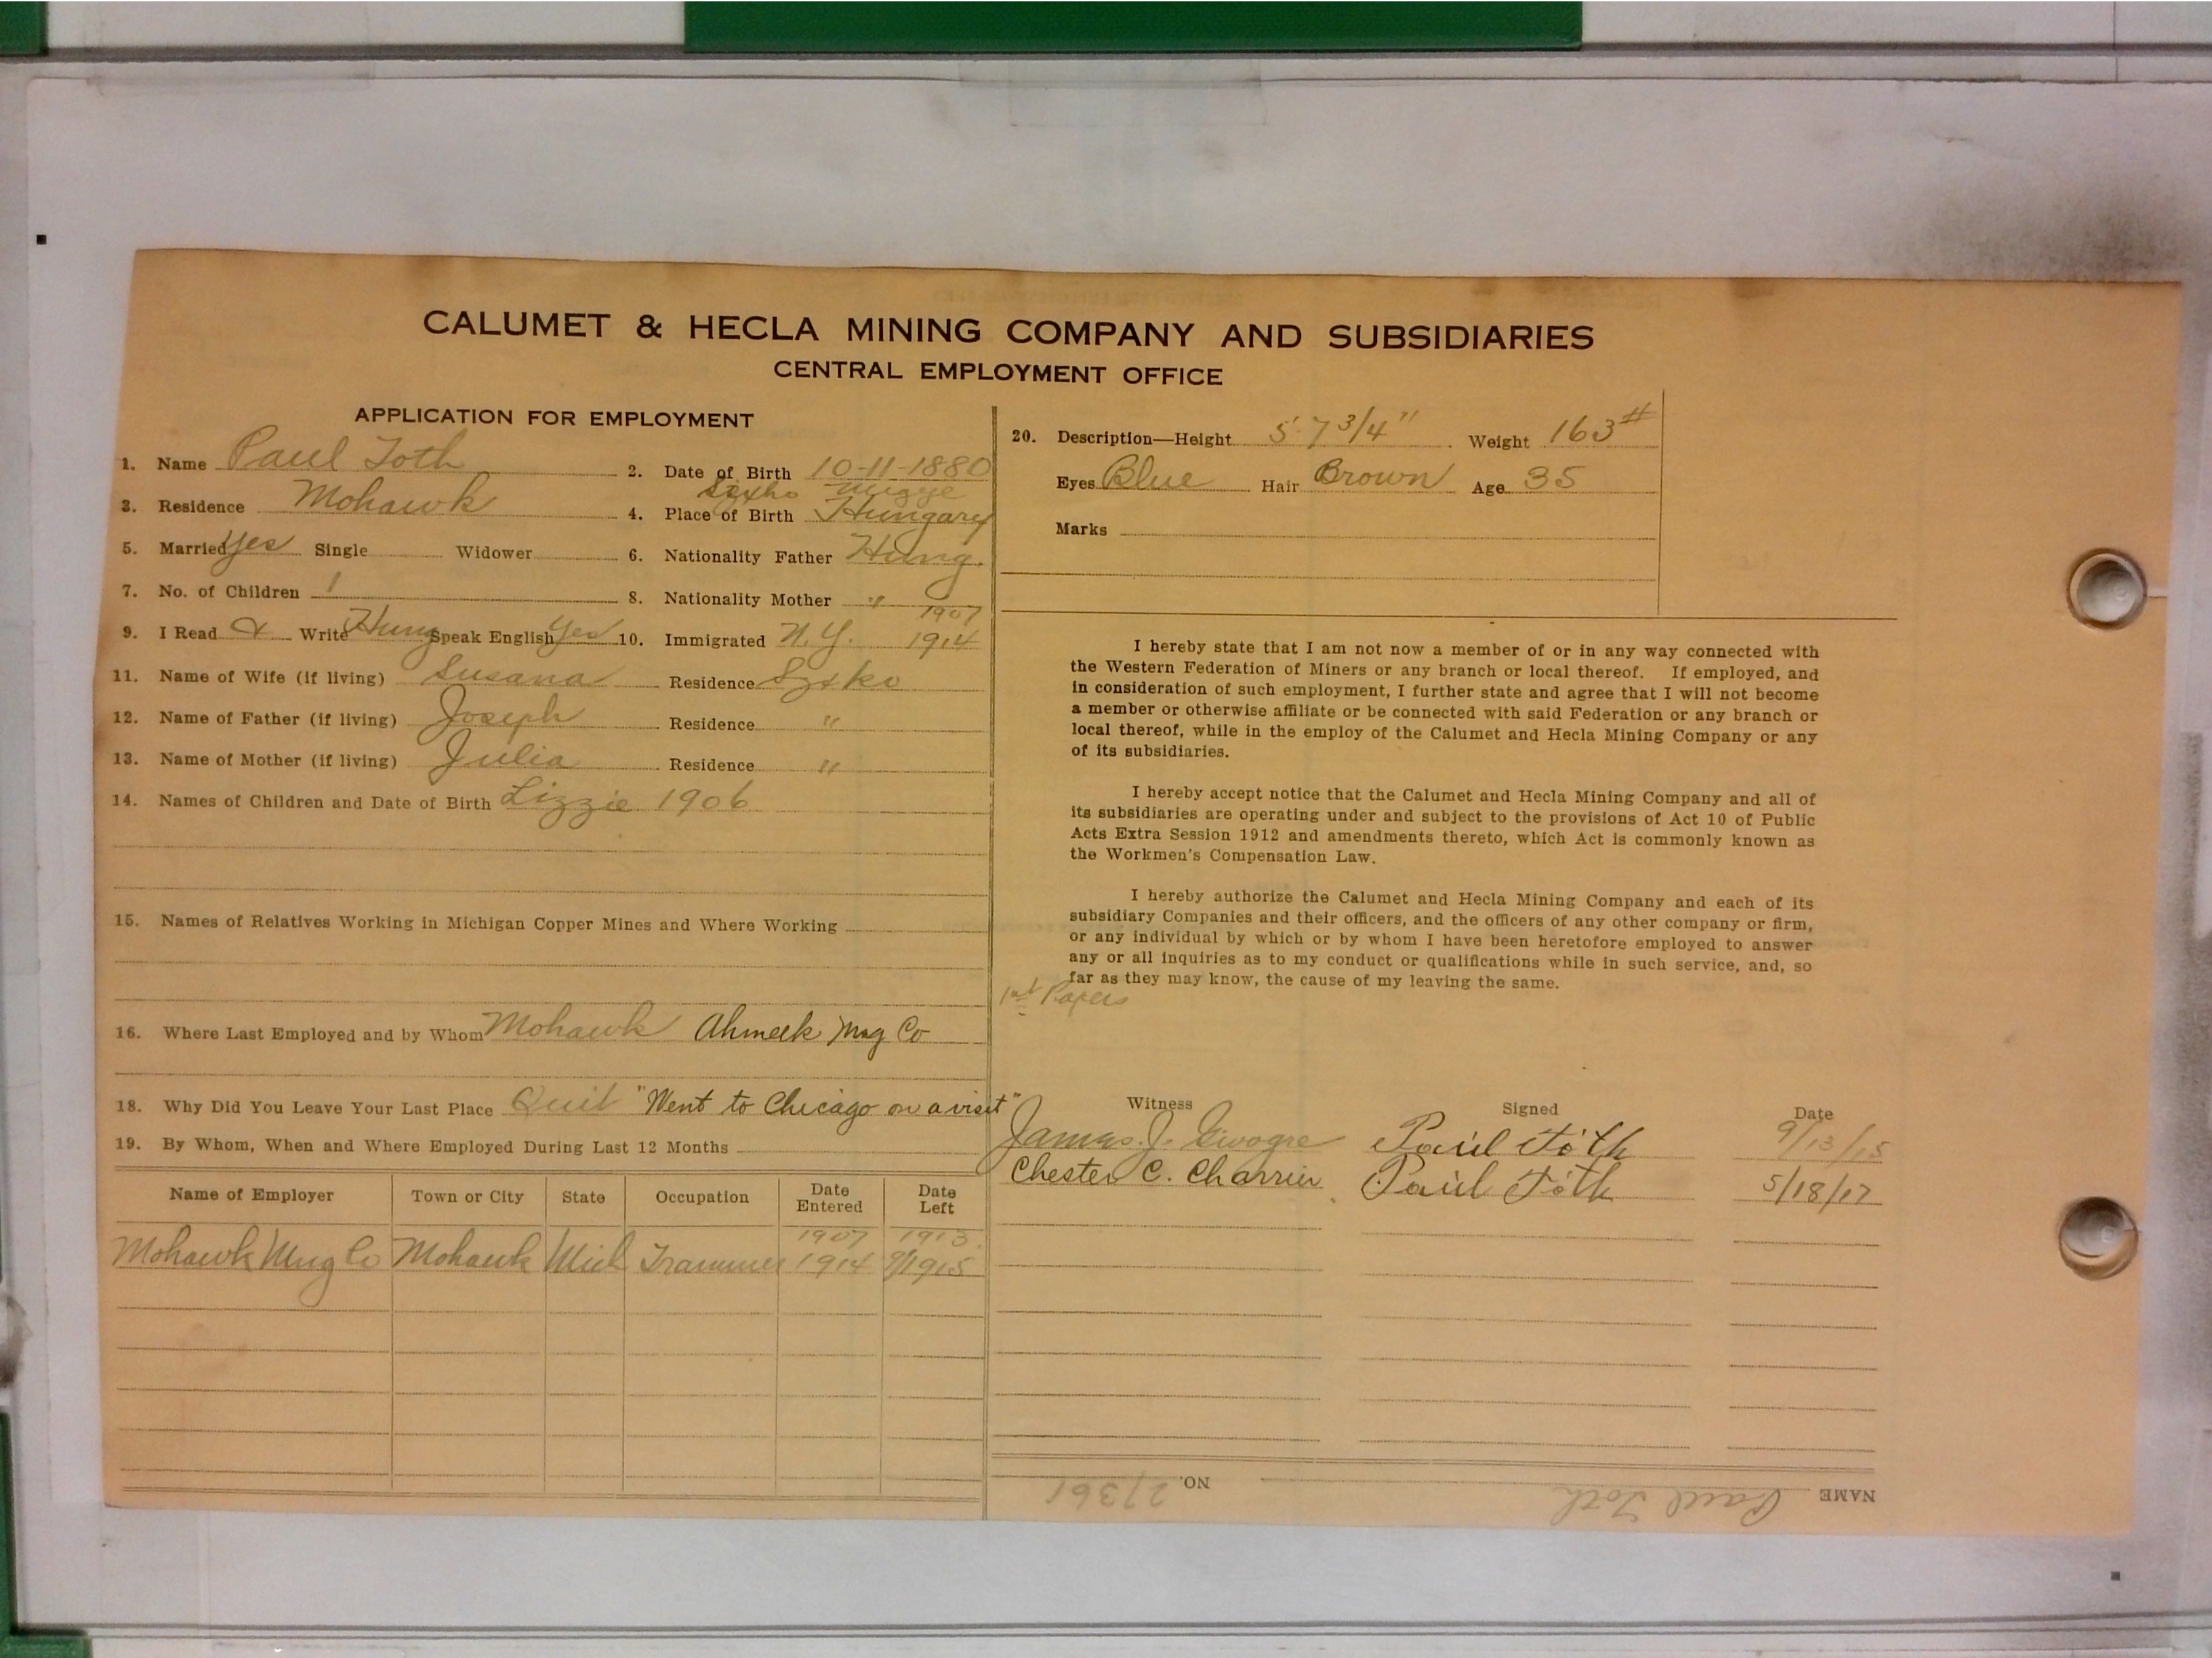 CALUMET & HECLA MINING COMPANY AND SUBSIDIARIES
CENTRAL EMPLOYMENT OFFICE
APPLICATION FOR EMPLOYMENT
1. Name Paul Toth 2. Date of Birth 10-11-1880
3. Residence Mohawk 4. Place of Birth Hungary
5. Married Yes Single Widower 6. Nationality Father Hung.
7. No. of Children 1 8. Nationality Mother "
1907
9. I Read & Write Hung Speak English Yes 10. Immigrated N.Y. 1914
11. Name of Wife (if living) Susana Residence
12. Name of Father (if living) Joseph Residence "
13. Name of Mother (if living) Julia Residence "
14. Names of Children and Date of Birth Lizzie 1906
15. Names of Relatives Working in Michigan Copper Mines and Where Working
16. Where Last Employed and by Whom Mohawk Ahmeek Mng Co
18. Why Did You Leave Your Last Place Quit "Went to Chicago on a visit"
19. By Whom, When and Where Employed During Last 12 Months
Name of Employer Town or City State Occupation Date Entered Date Left
1907 1913
Mohawk Mng Co Mohawk Mich Trammer 1914 9/1915
20. Description—Height 5' 7 3/4" Weight 163#
Eyes Blue Hair Brown Age 35
Marks
I hereby state that I am not now a member of or in any way connected with
the Western Federation of Miners or any branch or local thereof. If employed, and
in consideration of such employment, I further state and agree that I will not become
a member or otherwise affiliate or be connected with said Federation or any branch or
local thereof, while in the employ of the Calumet and Hecla Mining Company or any
of its subsidiaries.
I hereby accept notice that the Calumet and Hecla Mining Company and all of
its subsidiaries are operating under and subject to the provisions of Act 10 of Public
Acts Extra Session 1912 and amendments thereto, which Act is commonly known as
the Workmen's Compensation Law.
I hereby authorize the Calumet and Hecla Mining Company and each of its
subsidiary Companies and their officers, and the officers of any other company or firm,
or any individual by which or by whom I have been heretofore employed to answer
any or all inquiries as to my conduct or qualifications while in such service, and, so
far as they may know, the cause of my leaving the same.
1st Papers
Witness Signed Date
James J. Paul Tóth 9/13/15
Chester C. Charrier Paul Tóth 5/18/17
NAME Paul Toth NO. 27361